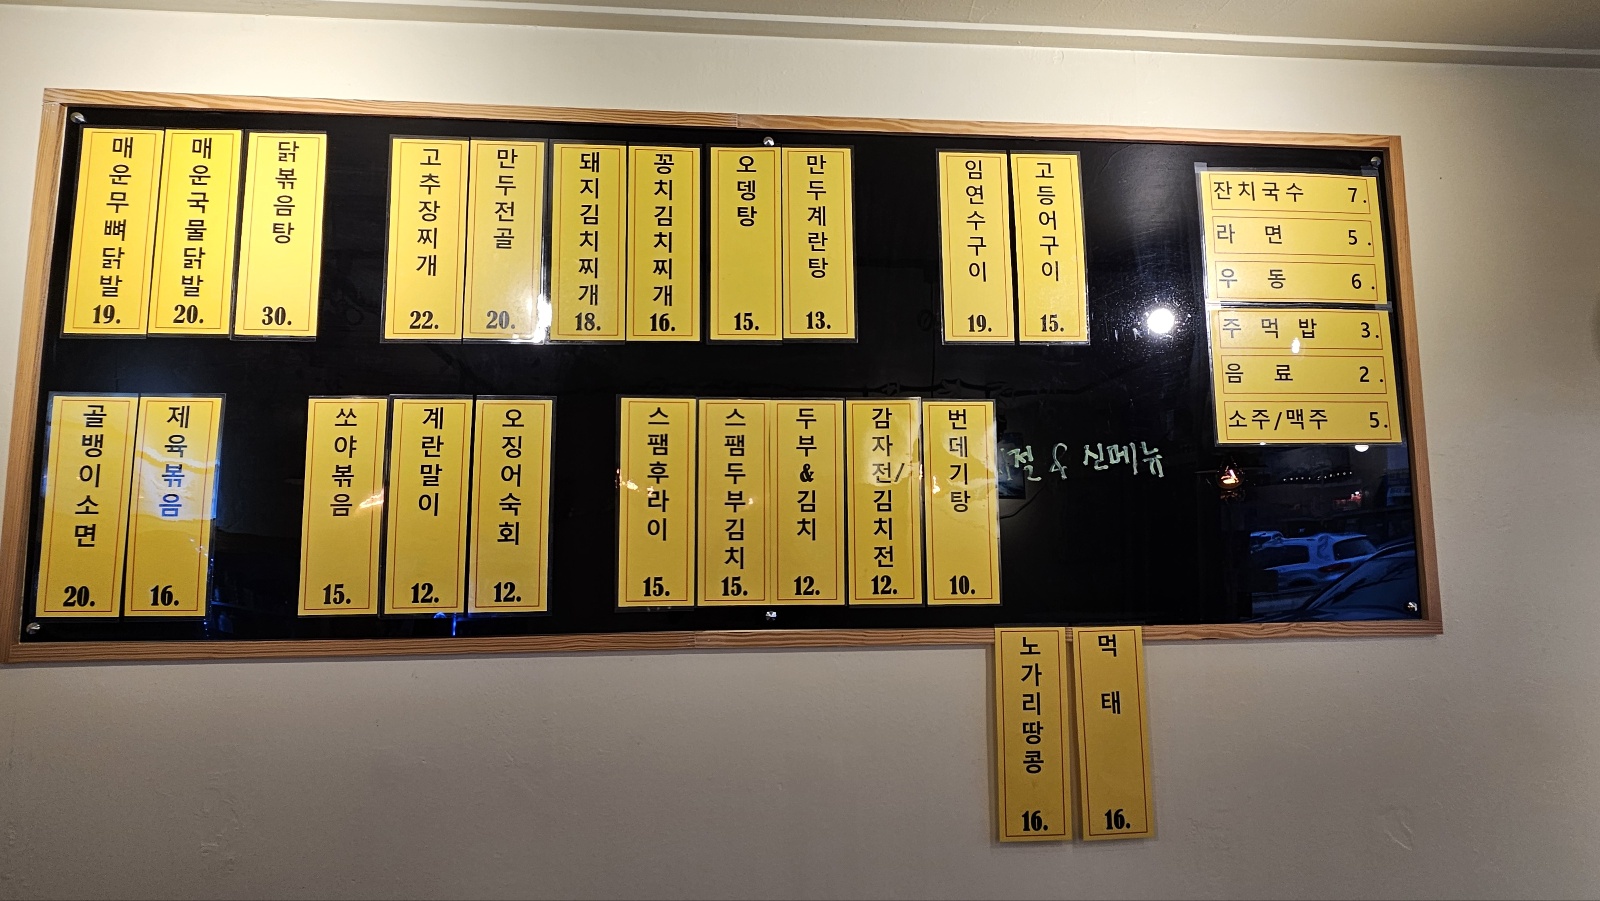 매운무뼈닭발 19.
매운국물닭발 20.
닭볶음탕 30.
고추장찌개 22.
만두전골 20.
돼지김치찌개 18.
꽁치김치찌개 16.
오뎅탕 15.
만두계란탕 13.
임연수구이 19.
고등어구이 15.
잔치국수 7.
라면 5.
우동 6.
주먹밥 3.
음료 2.
소주/맥주 5.
골뱅이소면 20.
제육볶음 16.
쏘야볶음 15.
계란말이 12.
오징어숙회 12.
스팸후라이 15.
스팸두부김치 15.
두부&김치 12.
감자전/김치전 12.
번데기탕 10.
절 & 신메뉴
노가리땅콩 16.
먹태 16.